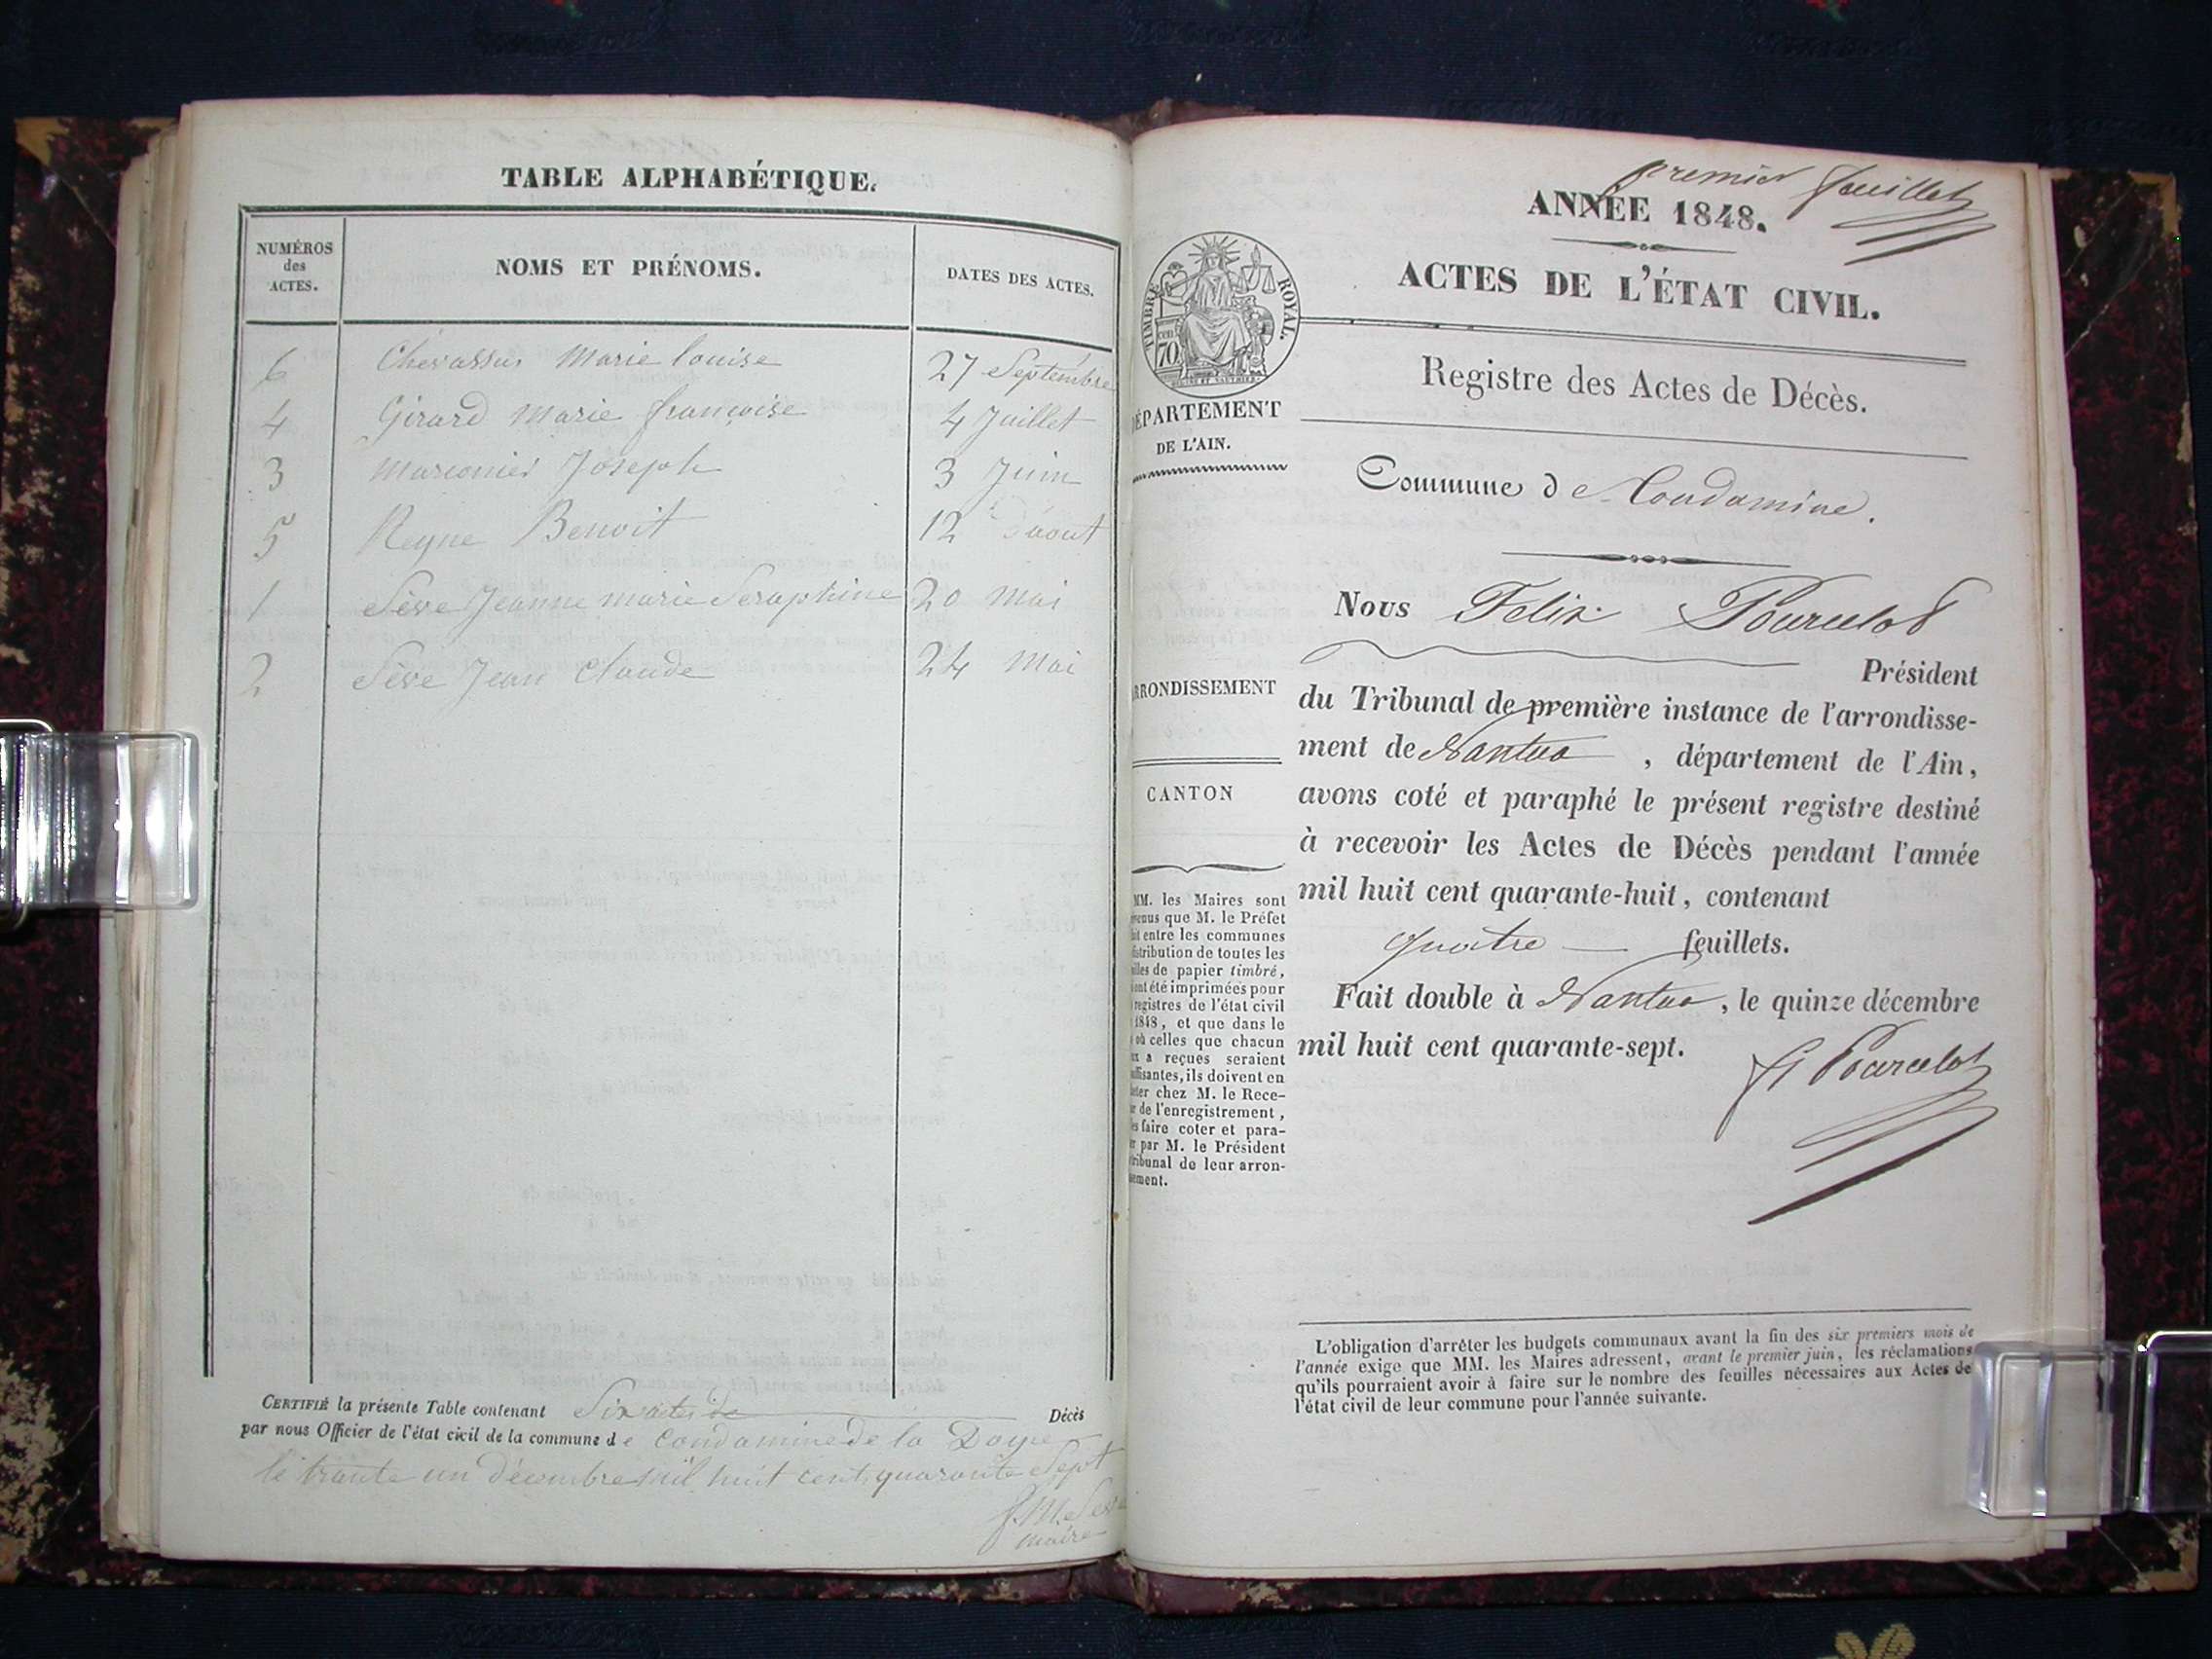 TABLE ALPHABÉTIQUE.
NUMÉROS
des
ACTES.
NOMS ET PRÉNOMS.
DATES DES ACTES.
6 Chevassus Marie Louise 27 Septembre
4 Girard Marie françoise 4 Juillet
3 Marconier Joseph 3 Juin
5 Reyne Benoit 12 Daout
1 Sève Jeanne marie Seraphine 20 Mai
2 Sève Jean Claude 24 Mai
CERTIFIÉ la présente Table contenant Six actes de Décès
par nous Officier de l'état civil de la commune de Condamine de la Doye
le trante un Décembre mil huit cent quarante Sept
maire
premier feuillet
ANNÉE 1848.
ACTES DE L'ÉTAT CIVIL.
TIMBRE ROYAL.
70
Registre des Actes de Décès.
DÉPARTEMENT
DE L'AIN.
Commune de Condamine.
Nous Felix Pourcelot
Président
du Tribunal de première instance de l'arrondisse-
ment de Nantua , département de l'Ain,
avons coté et paraphé le présent registre destiné
à recevoir les Actes de Décès pendant l'année
mil huit cent quarante-huit, contenant
quatre feuillets.
Fait double à Nantua, le quinze décembre
mil huit cent quarante-sept.
Pourcelot
ARRONDISSEMENT
CANTON
MM. les Maires sont
que M. le Préfet
entre les communes
distribution de toutes les
de papier timbré,
ont été imprimées pour
registres de l'état civil
1848, et que dans le
où celles que chacun
a reçues seraient
ils doivent en
chez M. le Rece-
de l'enregistrement,
faire coter et para-
par M. le Président
tribunal de leur arron-
L'obligation d'arrêter les budgets communaux avant la fin des six premiers mois de
l'année exige que MM. les Maires adressent, avant le premier juin, les réclamations
qu'ils pourraient avoir à faire sur le nombre des feuilles nécessaires aux Actes de
l'état civil de leur commune pour l'année suivante.